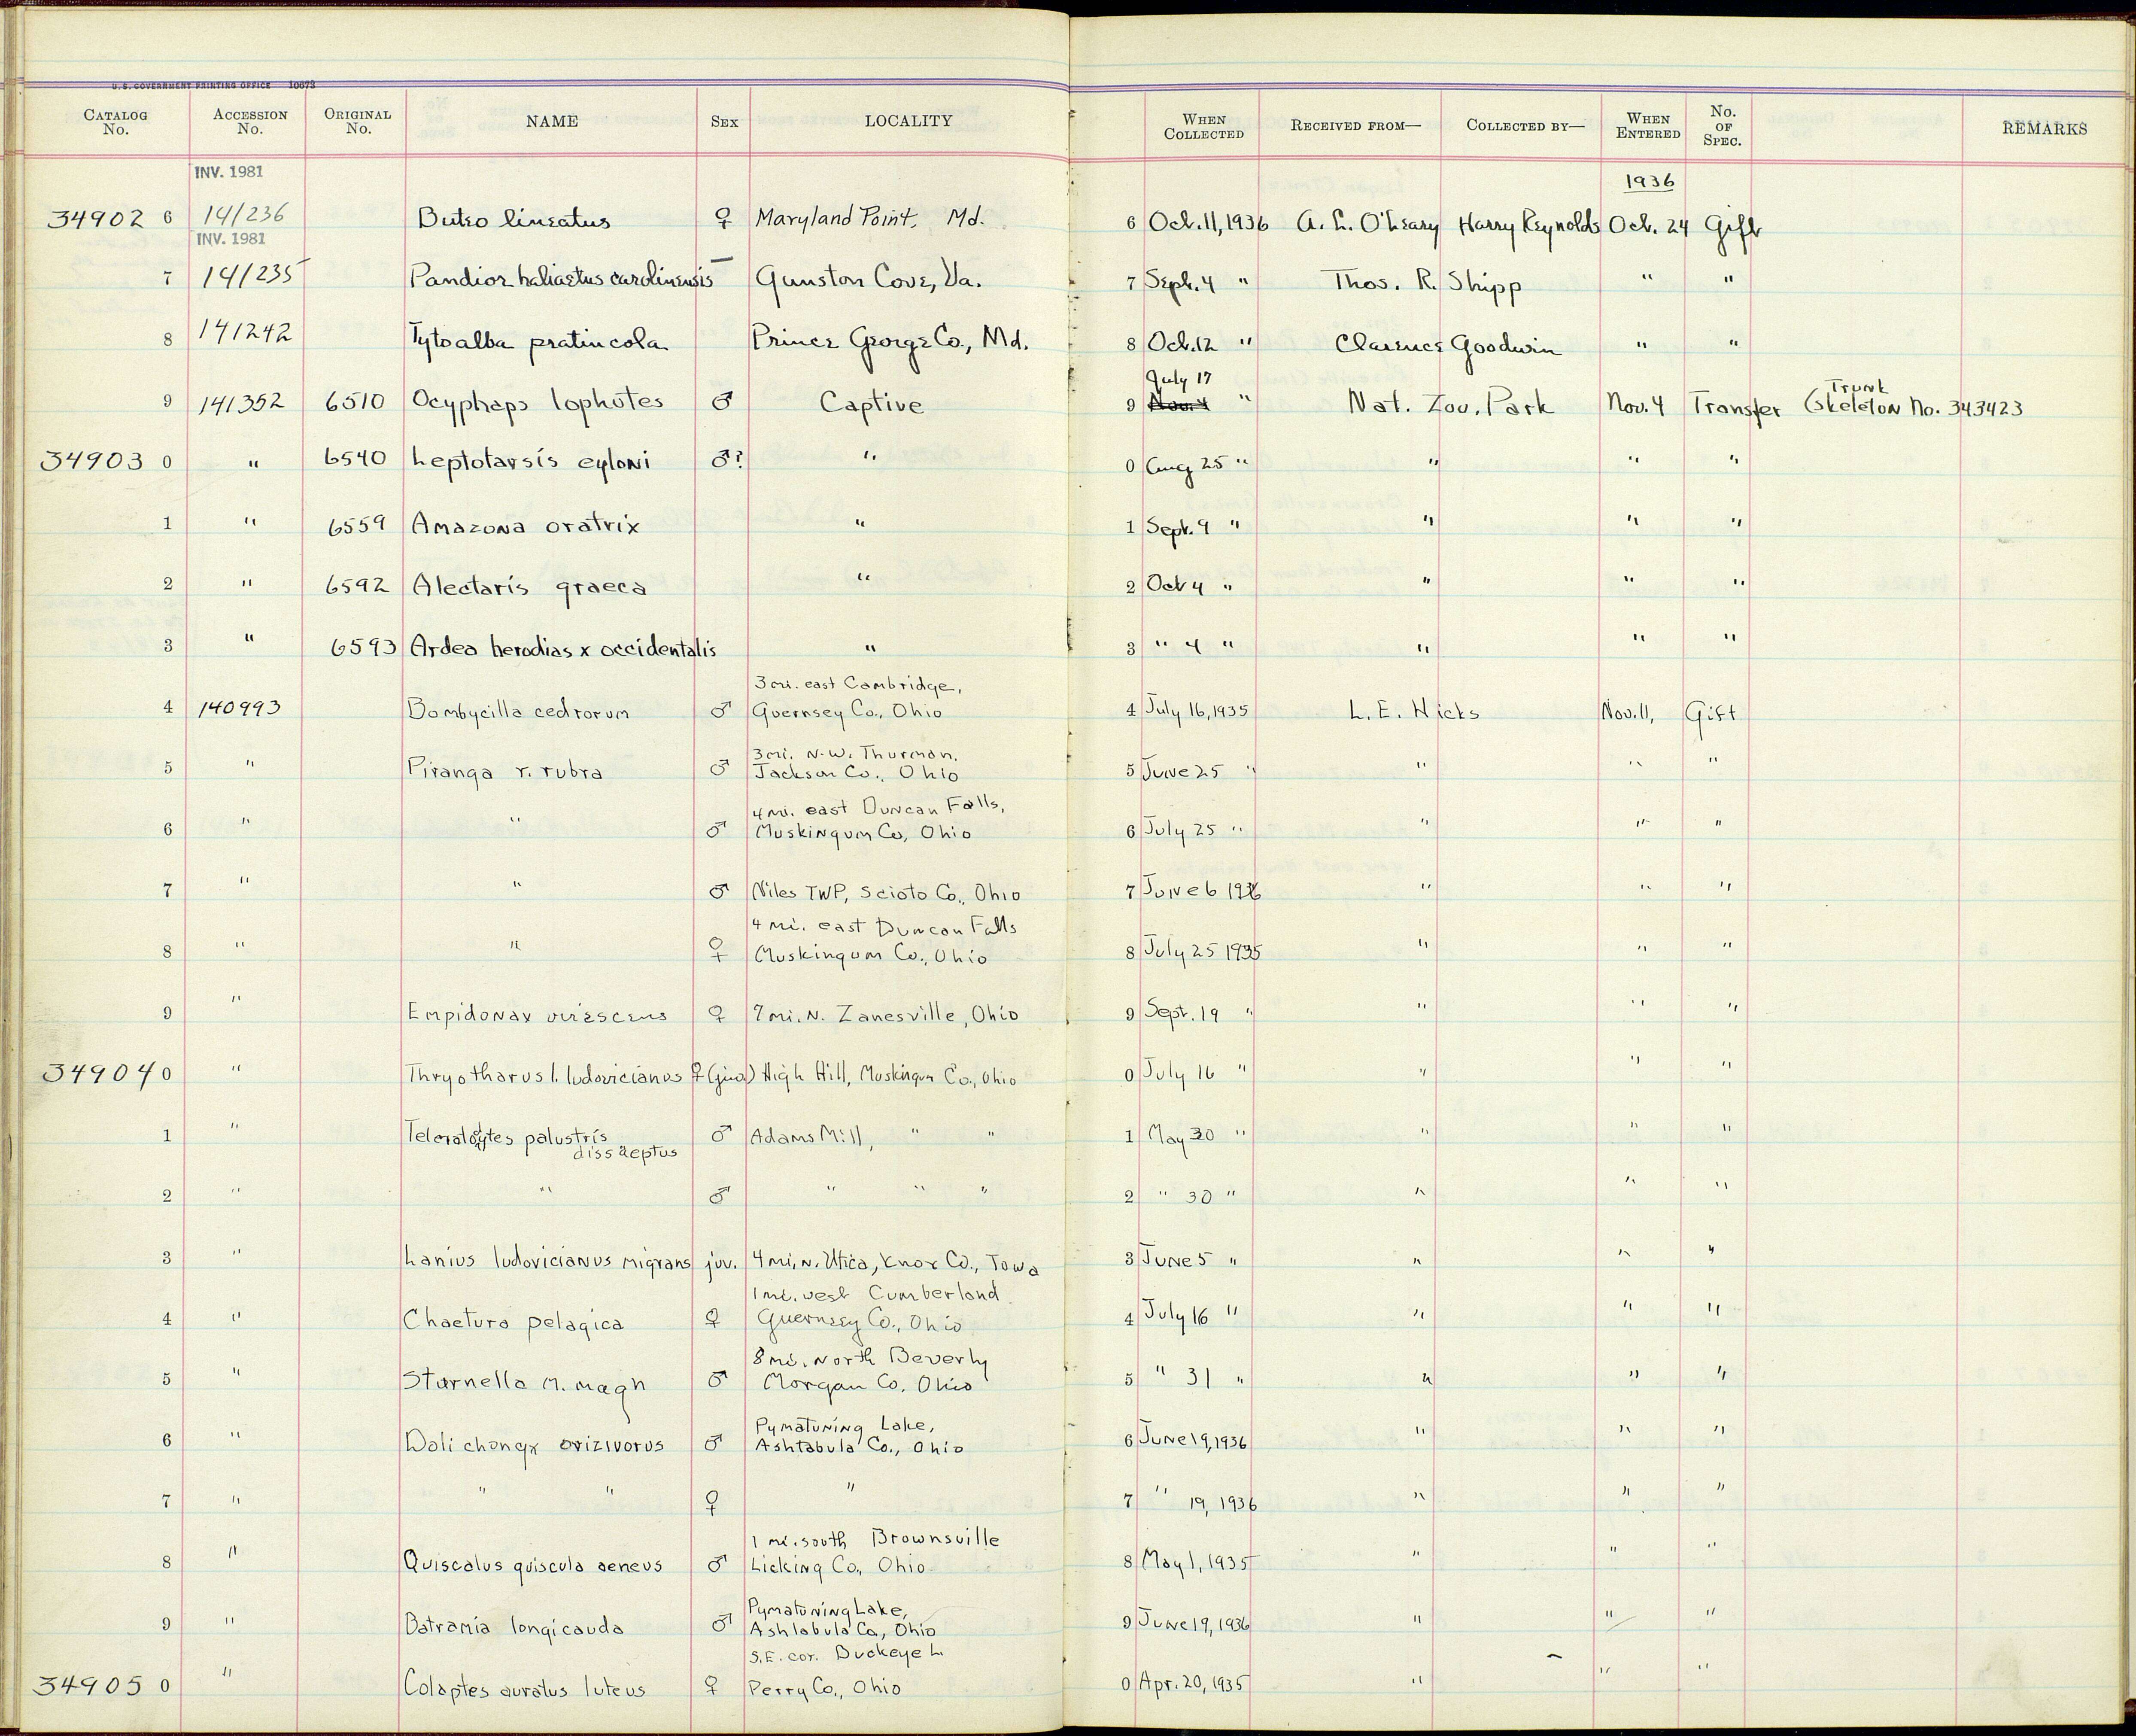 U.S. GOVERNMENT PRINTING OFFICE 10673
CATALOG No. ACCESSION No. ORIGINAL No. NAME SEX LOCALITY WHEN COLLECTED RECEIVED FROM— COLLECTED BY— WHEN ENTERED No. OF SPEC. REMARKS
INV. 1981
1936
34902 6 141236 Buteo lineatus ♀ Maryland Point, Md. 6 Oct. 11, 1936 A. L. O'Leary Harry Reynolds Oct. 24 Gift
INV. 1981
7 141235 Pandion haliaetus carolinensis — Gunston Cove, Va. 7 Sept. 4 " Thos. R. Shipp " "
8 141242 Tyto alba pratincola Prince George Co., Md. 8 Oct. 12 " Clarence Goodwin " "
July 17
Trunk
9 141352 6510 Ocyphaps lophotes ♂ Captive 9 Nov. 4 " Nat. Zoo. Park Nov. 4 Transfer (Skeleton No. 343423
34903 0 " 6540 Leptotarsis eytoni ♂? " 0 Aug 25 " " " "
1 " 6559 Amazona oratrix " 1 Sept. 9 " " " "
2 " 6592 Alectaris graeca " 2 Oct 4 " " " "
3 " 6593 Ardea herodias x occidentalis " 3 " 4 " " " "
3 mi. east Cambridge,
4 140993 Bombycilla cedrorum ♂ Guernsey Co., Ohio 4 July 16, 1935 L. E. Hicks Nov. 11, Gift
3 mi. N.W. Thurman,
5 " Piranga r. rubra ♂ Jackson Co., Ohio 5 June 25 " " " "
4 mi. east Duncan Falls,
6 " " ♂ Muskingum Co, Ohio 6 July 25 " " " "
7 " " ♂ Niles TWP, Scioto Co., Ohio 7 June 6 1936 " " "
4 mi. east Duncan Falls
8 " " ♀ Muskingum Co., Ohio 8 July 25 1935 " " "
9 " Empidonax virescens ♀ 7 mi. N. Zanesville, Ohio 9 Sept. 19 " " " "
34904 0 " Thryothorus l. ludovicianus ♀ (juv.) High Hill, Muskingum Co., Ohio 0 July 16 " " " "
1 " Telmatodytes palustris ♂ Adams Mill, " " 1 May 30 " " " "
dissaeptus
2 " " ♂ " " " 2 " 30 " " " "
3 " Lanius ludovicianus migrans juv. 4 mi. N. Utica, Knox Co., Iowa 3 June 5 " " " "
1 mi. west Cumberland
4 " Chaetura pelagica ♀ Guernsey Co., Ohio 4 July 16 " " " "
8 mi. north Beverly
5 " Sturnella m. magn ♂ Morgan Co. Ohio 5 " 31 " " " "
Pymatuning Lake,
6 " Dolichonyx orizivorus ♂ Ashtabula Co., Ohio 6 June 19, 1936 " " "
7 " " " ♀ " 7 " 19, 1936 " " "
1 mi. south Brownsville
8 " Quiscalus quiscula aeneus ♂ Licking Co., Ohio 8 May 1, 1935 " " "
Pymatuning Lake,
9 " Batramia longicauda ♂ Ashtabula Co, Ohio 9 June 19, 1936 " " "
S.E. cor. Buckeye L.
34905 0 " Colaptes auratus luteus ♀ Perry Co., Ohio 0 Apr. 20, 1935 " " "